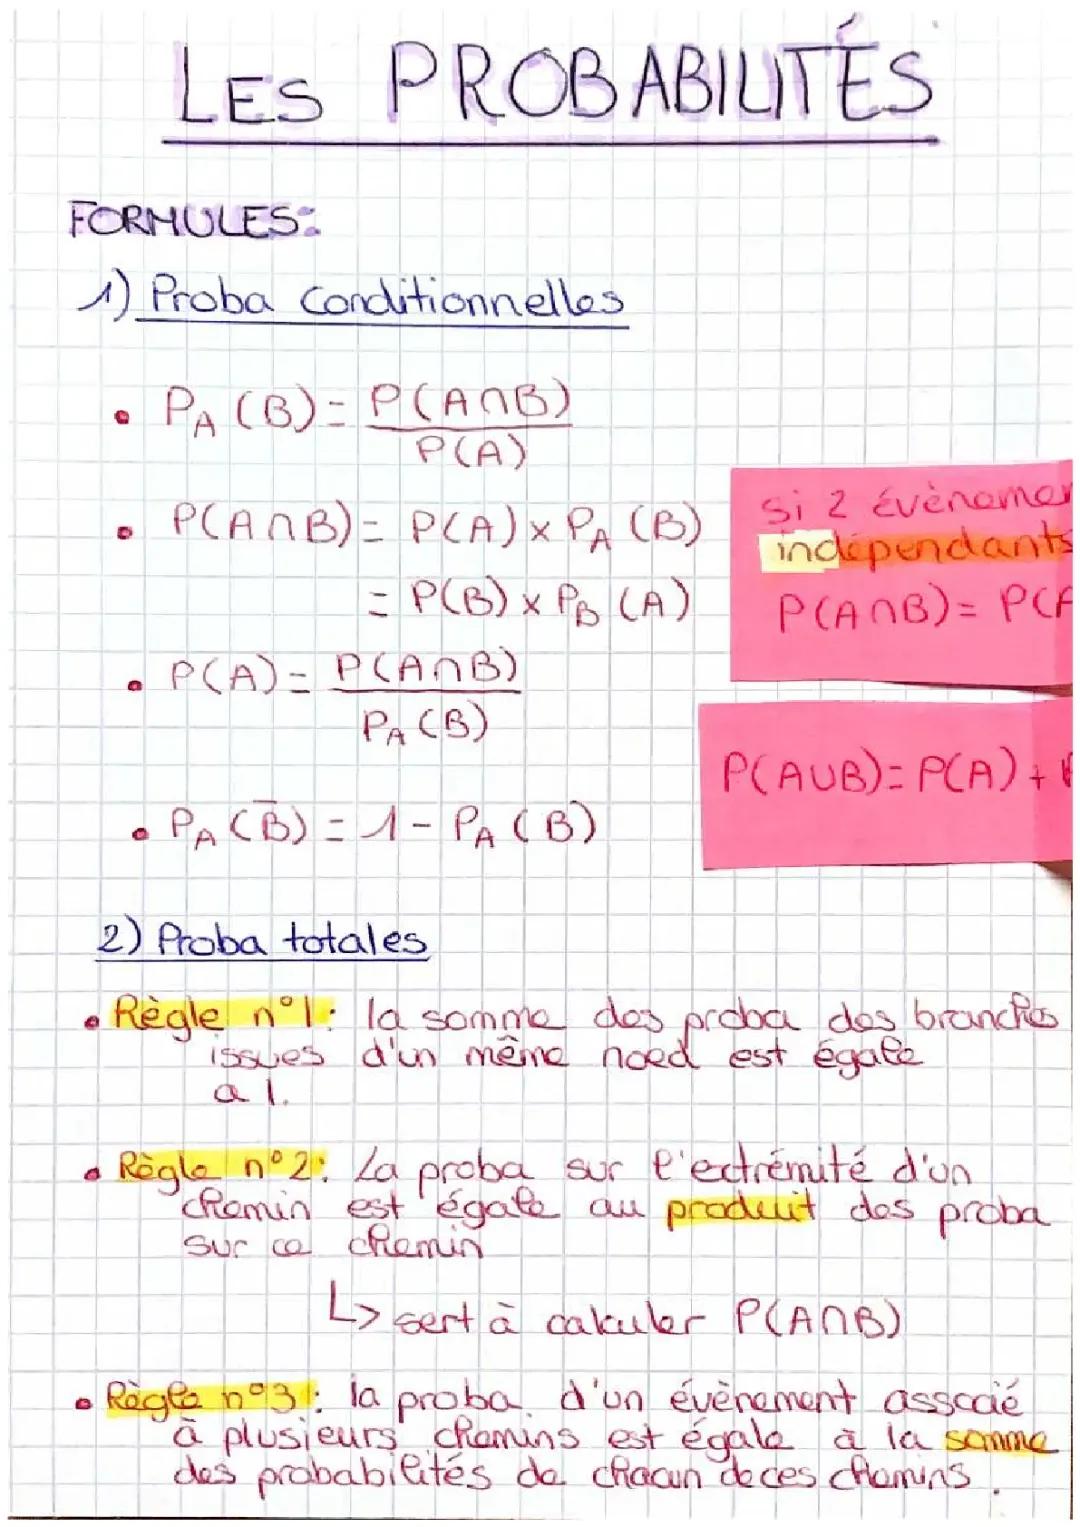 LES PROBABILITÉS
FORMULES:
1) Proba conditionnelles
• P_A (B) = P(A∩B) / P(A)
• P(A∩B) = P(A) × P_A (B)
= P(B) × P_B (A)
si 2 évènemen
indépendants
P(A∩B) = P(A
• P(A) = P(A∩B) / P_A (B)
P(A∪B) = P(A) +
• P_A (B̅) = 1 - P_A (B)
2) Proba totales
• Règle n°1: la somme des proba des branches
issues d'un même noed est égale
a 1.
• Règle n°2: La proba sur l'extrémité d'un
chemin est égale au produit des proba
sur ce chemin
↳ sert à calculer P(A∩B)
• Règle n°3: la proba d'un évènement associé
à plusieurs chemins est égale à la somme
des probabilités de chacun de ces chemins.